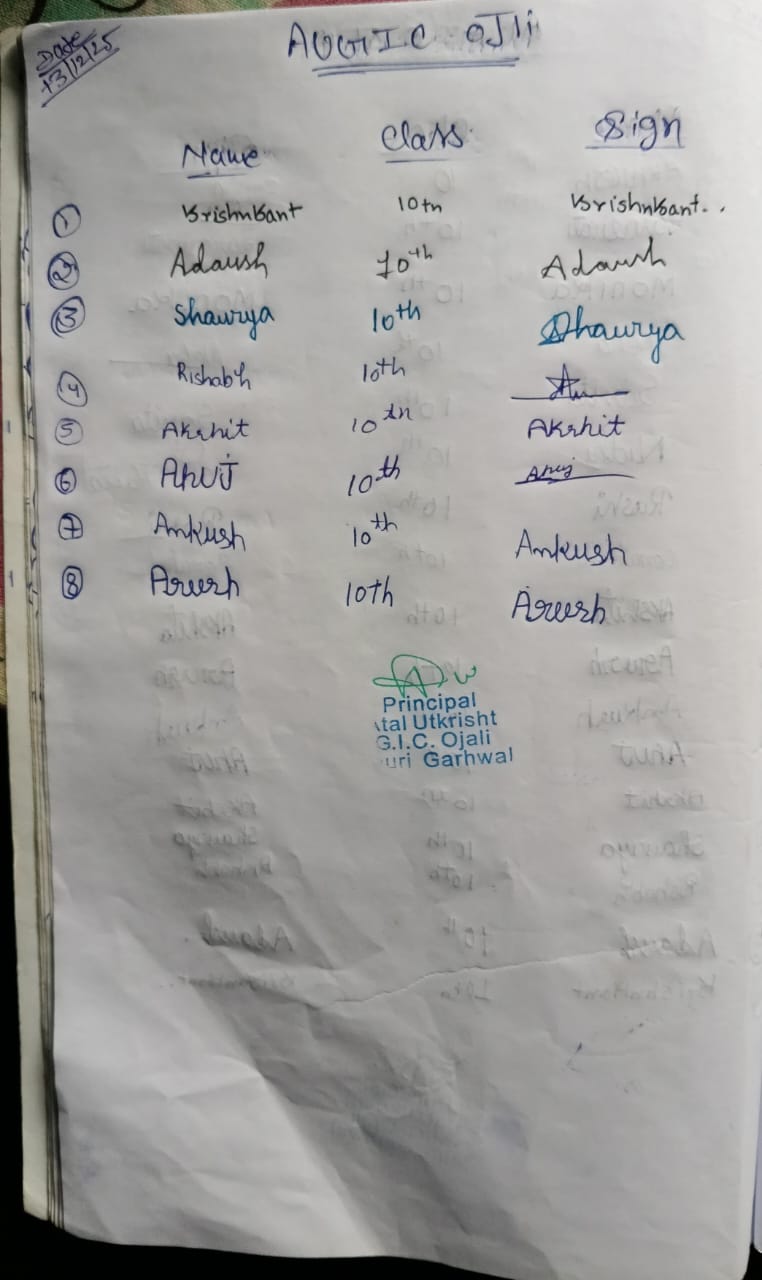 Date
13/12/25
AUGIC OJli
Name Class Sign
1 Krishnkant 10th Krishnkant..
2 Adarsh 10th Adarsh
3 Shaurya 10th Shaurya
4 Rishabh 10th
5 Akshit 10th Akshit
6 ANUJ 10th Anuj
7 Ankush 10th Ankush
8 Arush 10th Arush
Principal
Atal Utkrisht
G.I.C. Ojali
uri Garhwal